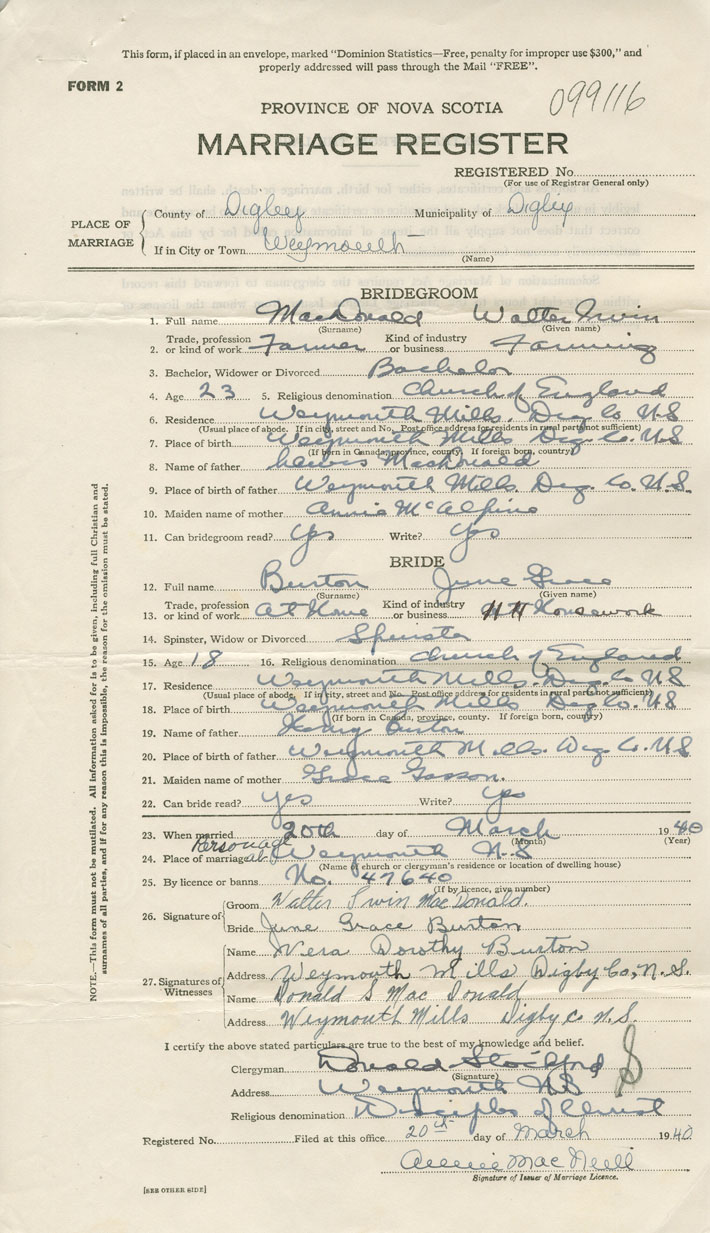 This form, if placed in an envelope, marked "Dominion Statistics—Free, penalty for improper use $300," and
properly addressed will pass through the Mail "FREE".
FORM 2
099116
PROVINCE OF NOVA SCOTIA
MARRIAGE REGISTER
REGISTERED No.
(For use of Registrar General only)
PLACE OF MARRIAGE
County of Digby Municipality of Digby
If in City or Town Weymouth
(Name)
BRIDEGROOM
1. Full name MacDonald Walter Irwin
(Surname) (Given name)
2. Trade, profession or kind of work Farmer Kind of industry or business Farming
3. Bachelor, Widower or Divorced Bachelor
4. Age 23 5. Religious denomination Church of England
6. Residence Weymouth Mills. Dig. Co N.S
(Usual place of abode. If in city, street and No. Post office address for residents in rural parts not sufficient)
7. Place of birth Weymouth Mills Dig. Co. N.S
(If born in Canada, province, county. If foreign born, country)
8. Name of father Lewis MacDonald
9. Place of birth of father Weymouth Mills. Dig. Co. N.S.
10. Maiden name of mother Annie McAlpine
11. Can bridegroom read? Yes Write? Yes
BRIDE
12. Full name Burton June Grace
(Surname) (Given name)
13. Trade, profession or kind of work At Home Kind of industry or business Housework
14. Spinster, Widow or Divorced Spinster
15. Age 18 16. Religious denomination Church of England
17. Residence Weymouth Mills. Dig. Co N.S
(Usual place of abode. If in city, street and No. Post office address for residents in rural parts not sufficient)
18. Place of birth Weymouth Mills Dig Co. N.S
(If born in Canada, province, county. If foreign born, country)
19. Name of father Henry Burton
20. Place of birth of father Weymouth Mills. Dig. Co. N.S
21. Maiden name of mother Grace
22. Can bride read? Yes Write? Yes
23. When married 20th day of March 1940
(Month) (Year)
Parsonage
24. Place of marriage at Weymouth N.S
(Name of church or clergyman's residence or location of dwelling house)
25. By licence or banns No. 47640
(If by licence, give number)
26. Signature of
Groom Walter Irwin MacDonald.
Bride June Grace Burton
27. Signatures of Witnesses
Name Vera Dorothy Burton
Address Weymouth Mills Digby Co, N.S.
Name Donald S MacDonald
Address Weymouth Mills Digby Co N.S.
I certify the above stated particulars are true to the best of my knowledge and belief.
Clergyman Donald Stockford
(Signature)
Address Weymouth N.S
Religious denomination Disciples of Christ
Registered No. Filed at this office 20th day of March 1940
Annie MacNeill
Signature of Issuer of Marriage Licence.
[SEE OTHER SIDE]
NOTE.—This form must not be mutilated. All information asked for is to be given, including full Christian and
surnames of all parties, and if for any reason this is impossible, the reason for the omission must be stated.